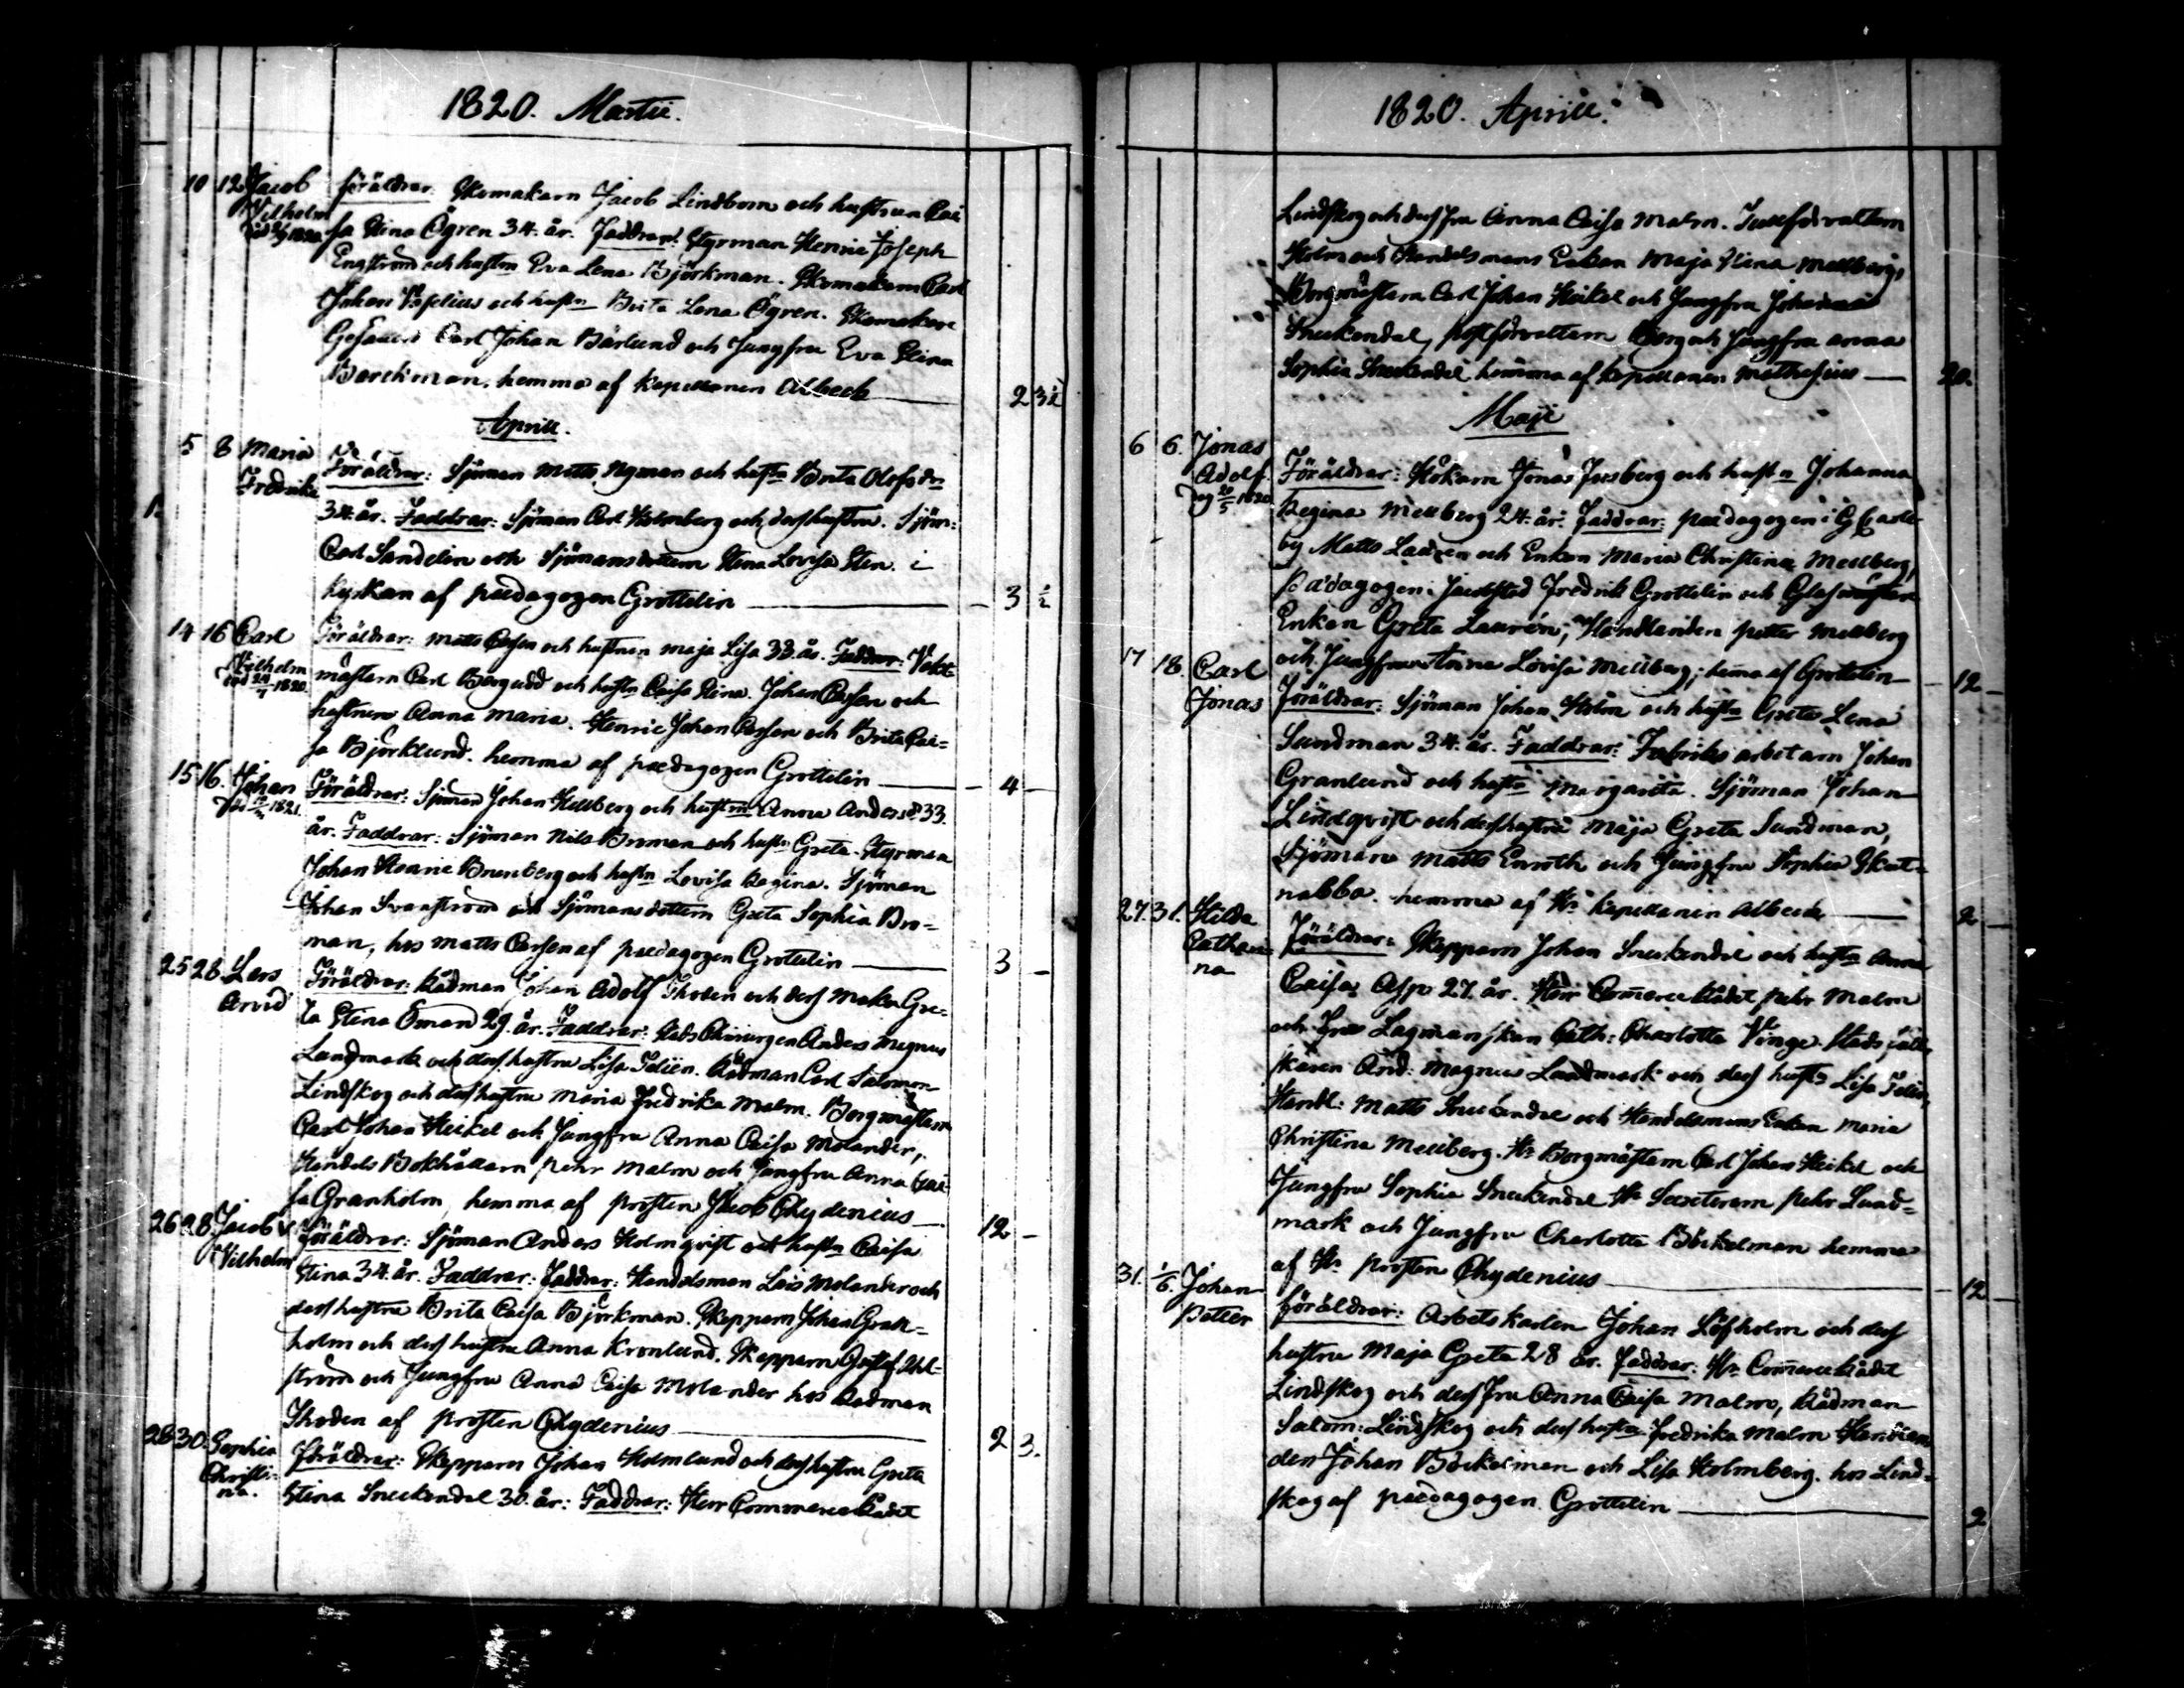 1820. Martii.
10 12 Jacob Föräldrar: Skomakarn Jacob Lindbom och hustrun Cai
Vilhelm sa Stina Ögren 34. år. Faddrar: Styrman Henric Joseph
Engström och hustrn Eva Lena Björkman. Skomakarn Carl
Johan och hustn Brita Lena Ögren. Skomakare
Gesällen Carl Johan Bärlund och Jungfru Eva Stina
Barckman. hemma af Kapellanen Albeck 2 3½
Aprill.
5 8 Maria Föräldrar: Sjöman Matts Nyman och hustn Brita Olofsdr
Fredrika 34. år. Faddrar: Sjöman Carl Holmberg och dess hustru. Sjöm:
1. Carl Sandelin och Sjömansdottern Stena Lovisa Sten. i
kyrkan af pædagogen Grottelin — 3 ½
14 16 Carl Föräldrar: Matts Carlson och hustrun Maja Lisa 33. år. Faddrar: Vakt-
Vilhelm mästarn Carl Bergudd och hustn Caisa Stina. Johan Carlson och
hustrun Anna Maria. Henric Johan Carlson och Brita Cai=
sa Björklund. hemma af pædagogen Grottelin — 4 —
15 16. Johan Föräldrar: Sjöman Johan Hellberg och hustrn Anna Andersd 33.
år. Faddrar: Sjöman Nils Broman och hustn Greta. Styrman
Johan Henric Brunberg och hustn Lovisa Regina. Sjöman
Johan Svanström och Sjömansdottern Greta Sophia Bro=
man, hos Matts Carlson af pædagogen Grottelin — 3 —
25 28 Lars Föräldrar: Rådman Johan Adolf Thoden och dess Maka Gre=
Arvid ta Stina Öman 29. år. Faddrar: Stads Chirurgen Anders Magnus
Landmark och dess hustru Lisa Felien. Rådman Carl Salomon
Lindskog och dess hustru Maria Fredrika Malm. Borgmästarn
Carl Johan Heikel och Jungfru Anna Caisa Molander,
Handels Bokhållarn Pehr Malm och Jungfru Anna Cai=
sa Granholm, hemma af prosten Jacob Chydenius — 12 —
26 28 Jacob Föräldrar: Sjöman Anders Holmqvist och hustn Caisa
Vilhelm Stina 34. år. Faddrar: Faddrar: Handelsman Lars Molander och
dess hustru Brita Caisa Björkman. Skepparn Johan Gran=
holm och dess hustru Anna Kronlund. Skepparn Gustaf Ahl=
ström och Jungfru Anna Caisa Molander hos Rådman
Thoden af prosten Chydenius — 2 3.
28 30 Sophia Föräldrar: Skepparn Johan Holmlund och dess hustru Greta
Christi=
na. Stina Sneckendal 30. år: Faddrar: Herr Commerce Rådet
1820. Aprill.
Lindskog och dess fru Anna Caisa Malm. Tullförvaltarn
Holm och Handelsmans Enkan Maja Stina Mellberg,
Borgmästarn Carl Johan Heikel och Jungfru Johanna
Sneckendal, postförvaltarn Borg och Jungfru Anna
Sophia Sneckendal hemma af Kapellanen Mathesius — 20.
Maji
6 6. Jonas Föräldrar: Hökarn Jonas Forsberg och hustn Johanna
Adolf Regina Mellberg 24. år. Faddrar: pædagogen i G Carle
by Matts Laurén och Enkan Maria Christina Mellberg,
Pædagogen i Jacobstad Fredrik Grottelin och Glasmästare
Enkan Greta Laurén; Handlanden Petter Mellberg
och Jungfru Anna Lovisa Mellberg; hema af Grottelin — 12 —
17 18. Carl Föräldrar: Sjöman Johan Holm och hustn Greta Lena
Jonas Sundman 34. år. Faddrar: Fabriks arbetarn Johan
Granlund och hustn Margareta. Sjöman Johan
Lindqvist och dess hustru Maja Greta Sundman,
Sjöman Matts Enroth och Jungfru Sophia Skat=
nabba. hemma af Hr Kapellanen Albeck — 2 —
27. 31. Hilda Föräldrar: Skepparn Johan Sneckendal och hustn Anna
Cathari=
na Caisa Asp 27. år. Herr Comerce Rådet Pehr Malm
och Fru Lagmanskan Cath: Charlotta Vinge. Stads fält=
skären And: Magnus Landmark och dess hustr Lisa Felien,
Handl: Matts Sneckendal och Handelsmans Enkan Maria
Christina Mellberg. Hr Borgmästarn Carl Johan Heikel och
Jungfru Sophia Sneckendal Hr Secretern Pehr Lund=
mark och Jungfru Charlotta Böckelman hemma
af Hr Prosten Chydenius — 12 —
31. 1/6. Johan Föräldrar: Arbets karlen Johan Löfholm och dess
Petter hustru Maja Greta 28 år. Faddrar: Hr Comerce Rådet
Lindskog och dess Fru Anna Caisa Malm, Rådman
Salom: Lindskog och dess hustru Fredrika Malm
den Johan Böckelman och Lisa Holmberg. hos Lind=
skog af pædagogen Grottelin — 2